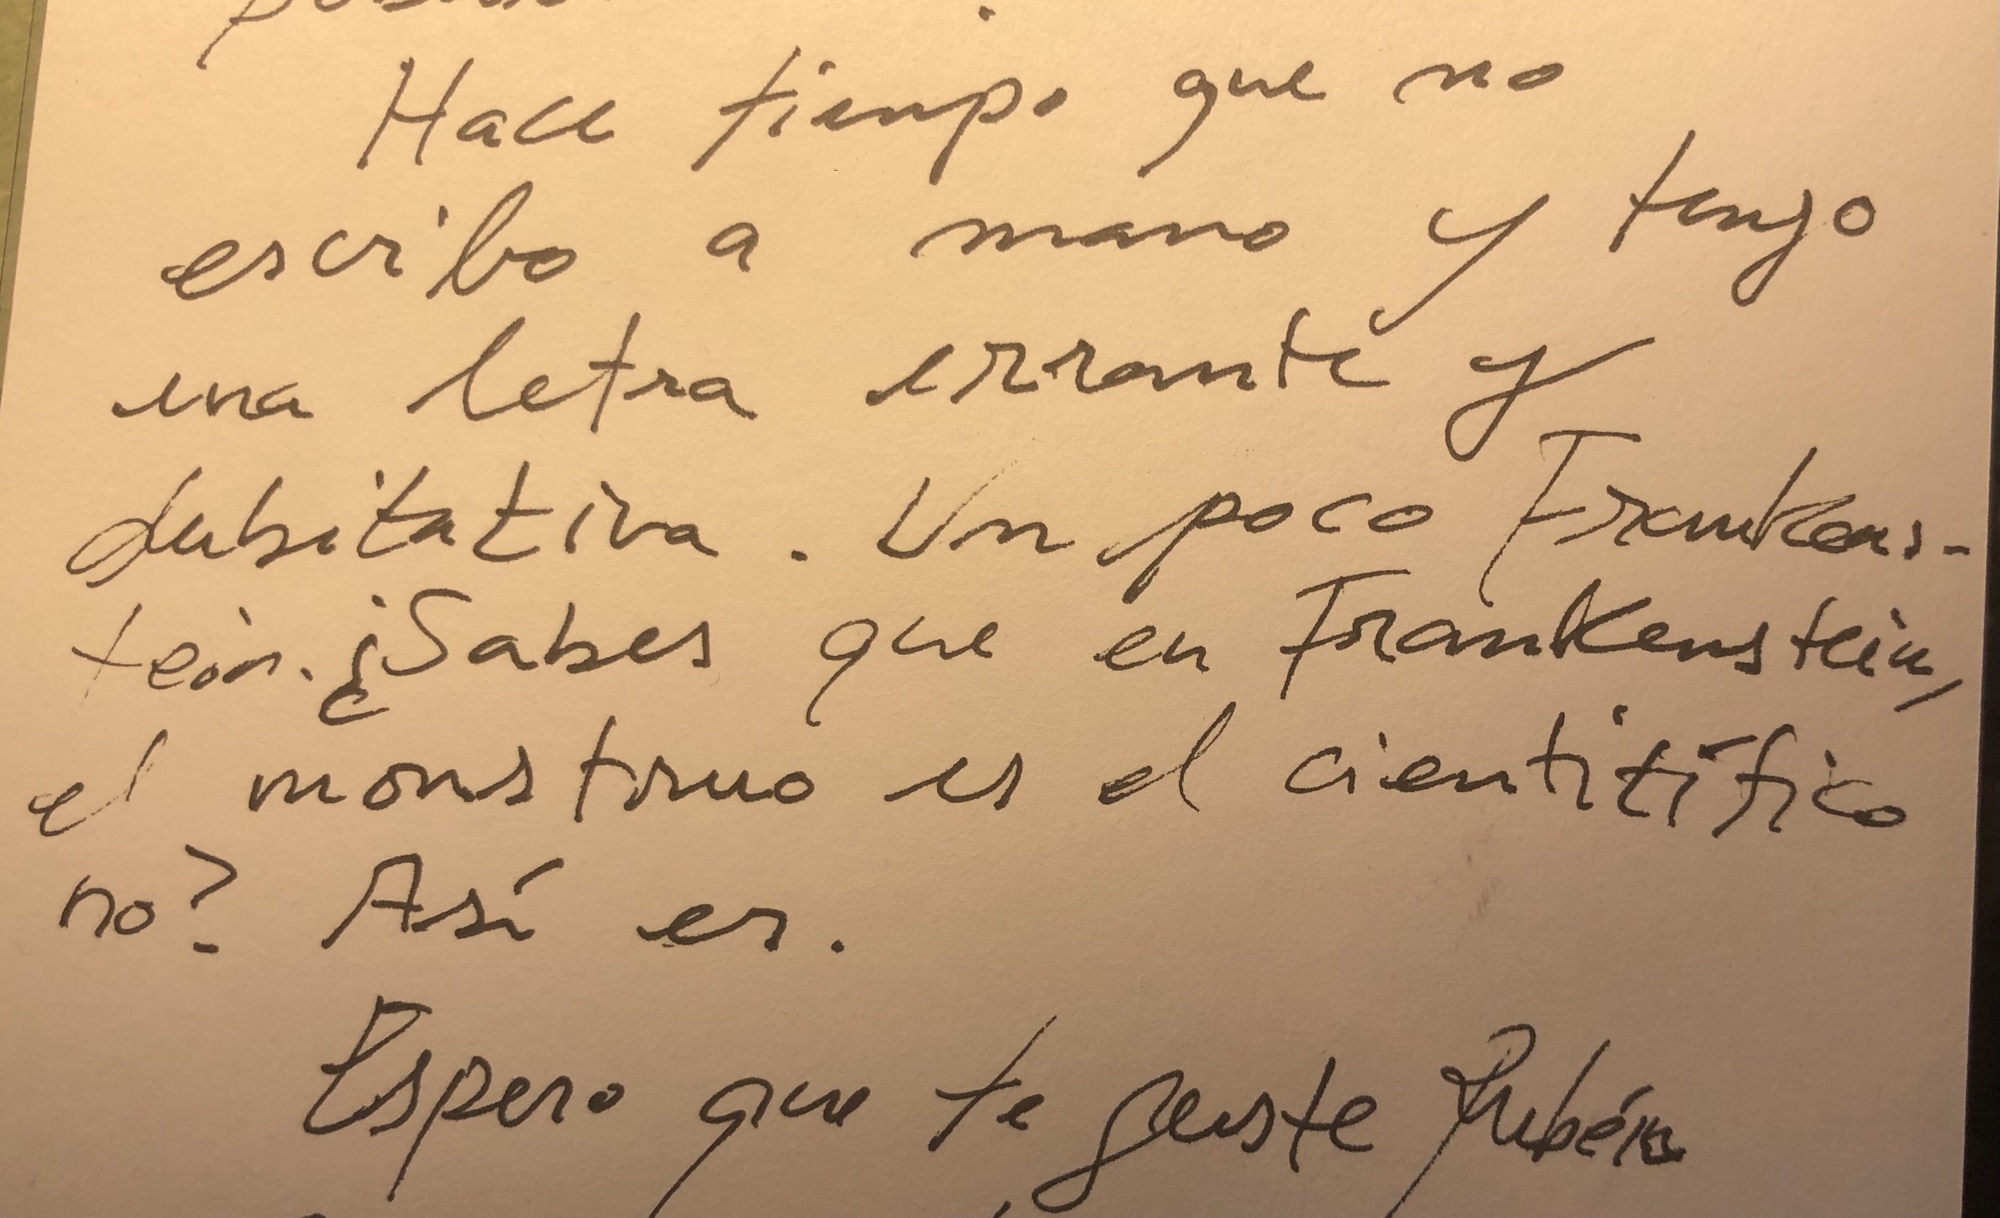 Hace tiempo que no
escribo a mano y tengo
una letra errante y
dubitativa. Un poco Frankens-
tein. ¿Sabes que en Frankenstein,
el monstruo es el cientitífico
no? Así es.
Espero que te guste Rubén